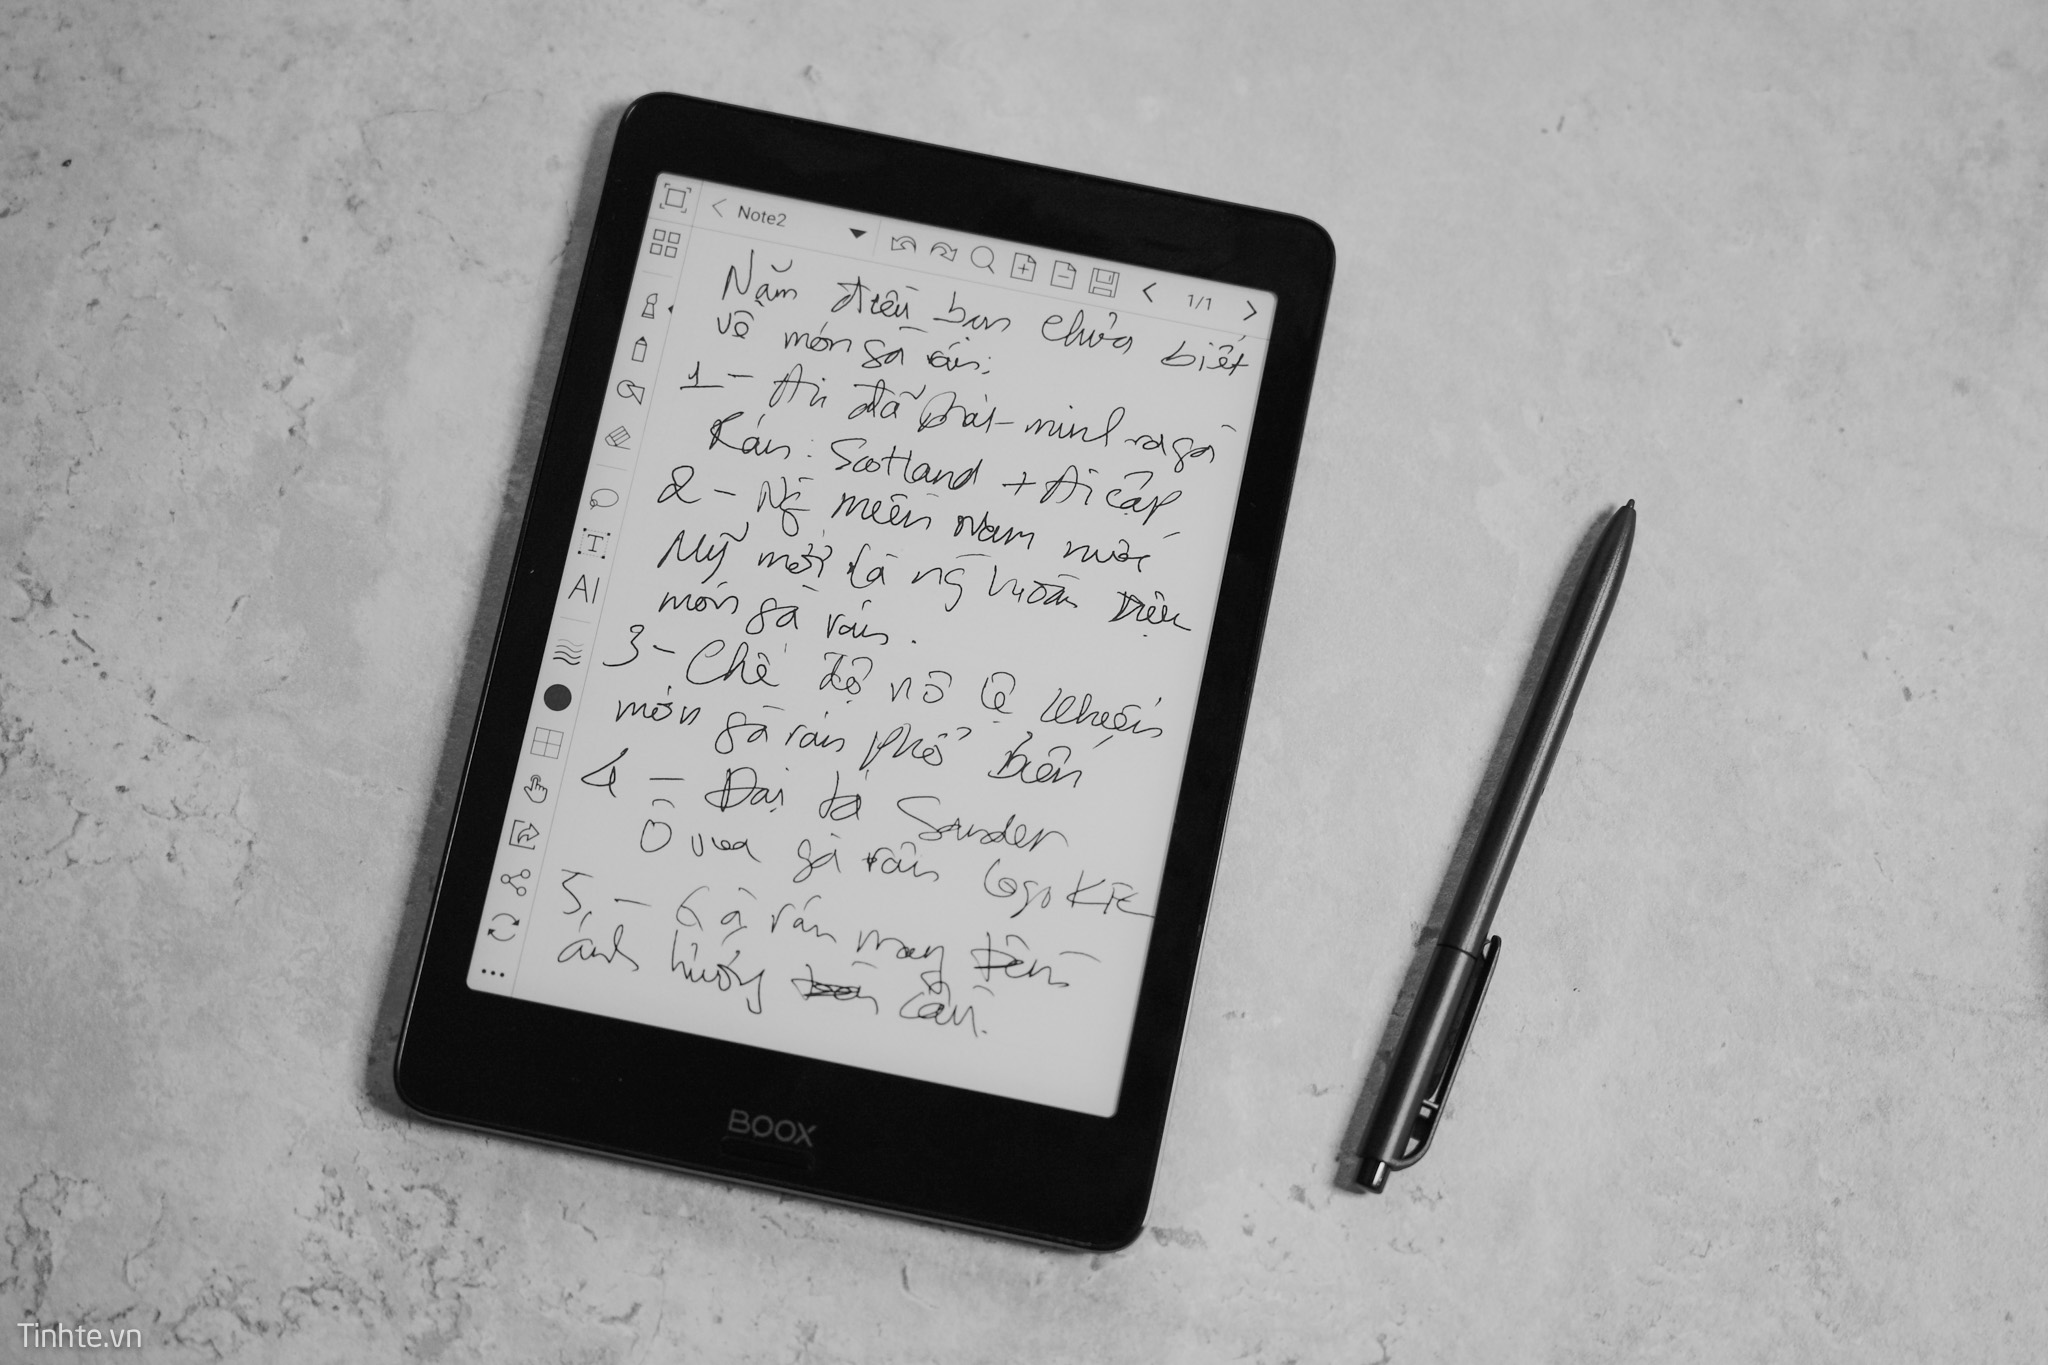 Note2
1/1
Năm điều bạn chưa biết
về món gà rán:
1 - Ai đã phát minh ra gà
Rán: Scotland + Ai cập
2 - Ng miền nam nước
Mỹ mới là ng hoàn thiện
món gà rán.
3 - Chế độ nô lệ khiến
món gà rán phổ biến
4 - Đại tá Sander
Ô vua gà rán logo KFC
5, - Gà rán mang tên
ánh hưởng cần.
AI
BOOX
Tinhte.vn